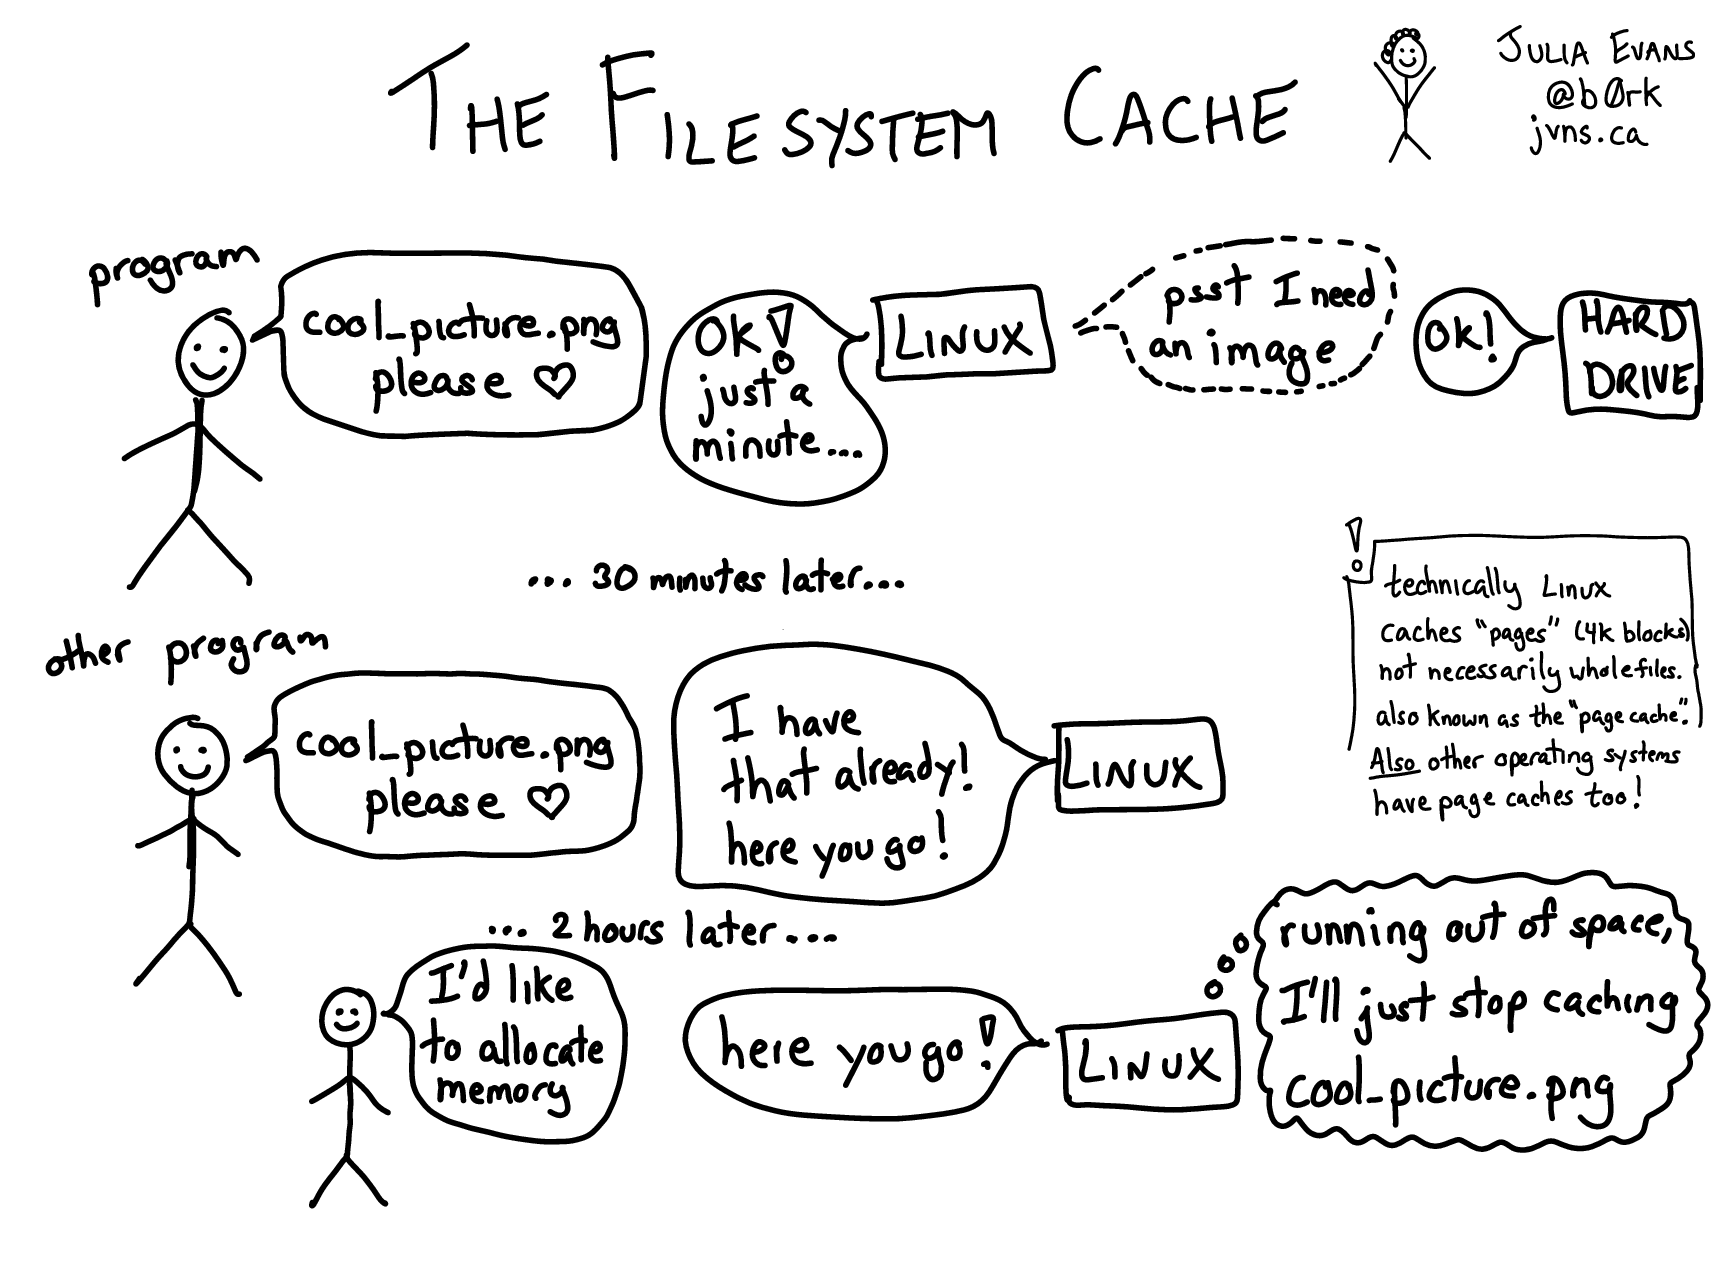 THE FILESYSTEM CACHE
JULIA EVANS
@b0rk
jvns.ca
program
cool_picture.png
please ♡
OK!
just a
minute...
LINUX
psst I need
an image
OK!
HARD
DRIVE
... 30 minutes later...
other program
cool_picture.png
please ♡
I have
that already!
here you go!
LINUX
!
technically Linux
caches "pages" (4k blocks)
not necessarily whole files.
also known as the "page cache".
Also other operating systems
have page caches too!
... 2 hours later...
I'd like
to allocate
memory
here you go!
LINUX
running out of space,
I'll just stop caching
cool_picture.png